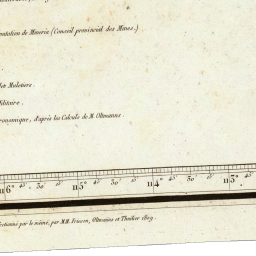 Députation de Minería (Conseil provincial des Mines.)
des Muletiers.
Militaire.
d'après les Calculs de M. Oltmanns.
116° 45' 30' 15' 115° 45' 30' 15' 114° 45' 30' 15' 113° 45'
par le même, par MM. Friesen, Oltmanns et Thuilier 1809.